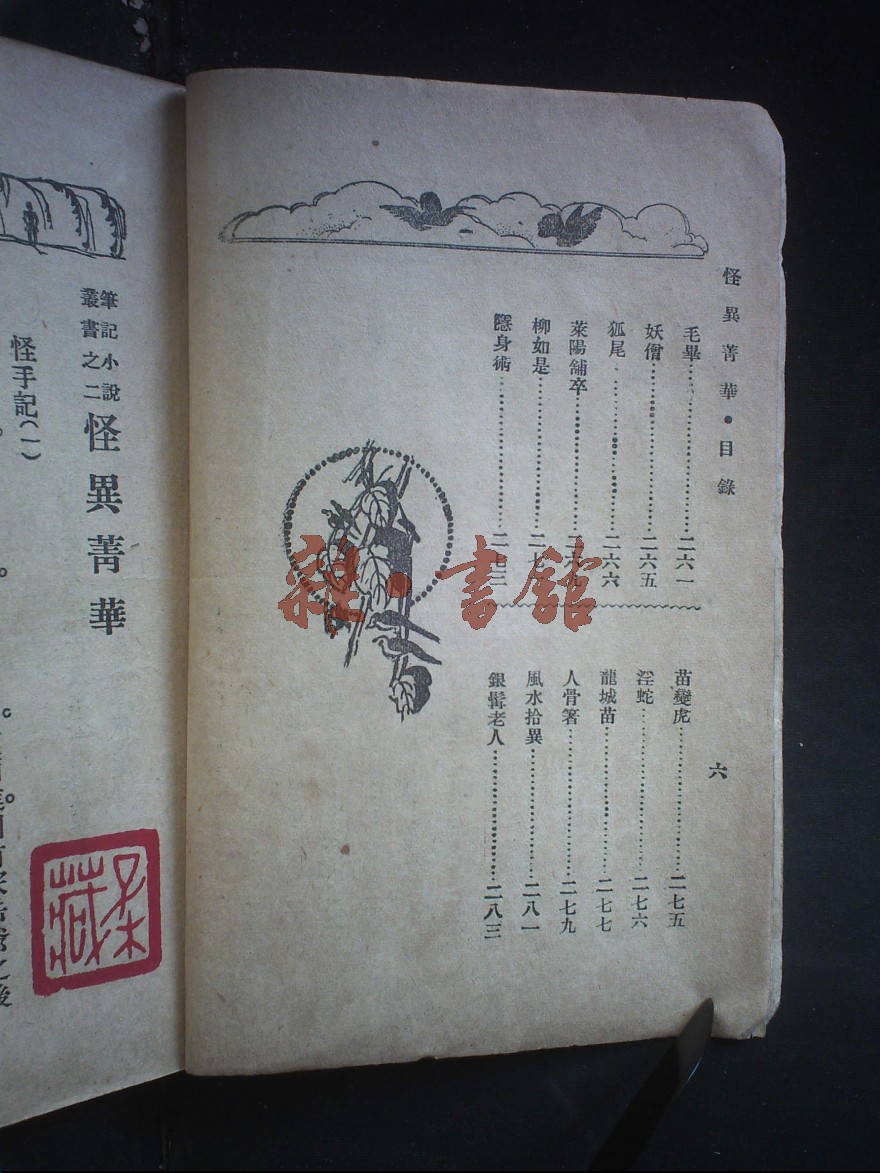 怪異菁華・目錄
六
毛畢 二六一
妖僧 二六五
狐尾 二六六
萊陽舖卒 二六九
柳如是 二七
隱身術 二七二
苗變虎 二七五
淫蛇 二七六
龍城苗 二七七
人骨箸 二七九
風水拾異 二八一
銀髯老人 二八三
筆記小說
叢書之二
怪異菁華
怪手記(一)
雜・書館